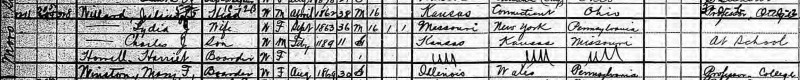 Willard Head W M April 1862 38 M 16 Kansas Connecticut Ohio
Lydia Wife W F Sept 1863 36 M 16 1 1 Missouri New York Pennsylvania
Charles J Son W M 1889 11 S Kansas Kansas Missouri At School
Howell, Harriet Boarder W F
Winston, F Boarder W F Aug 1869 30 S Illinois Wales Pennsylvania Professor College